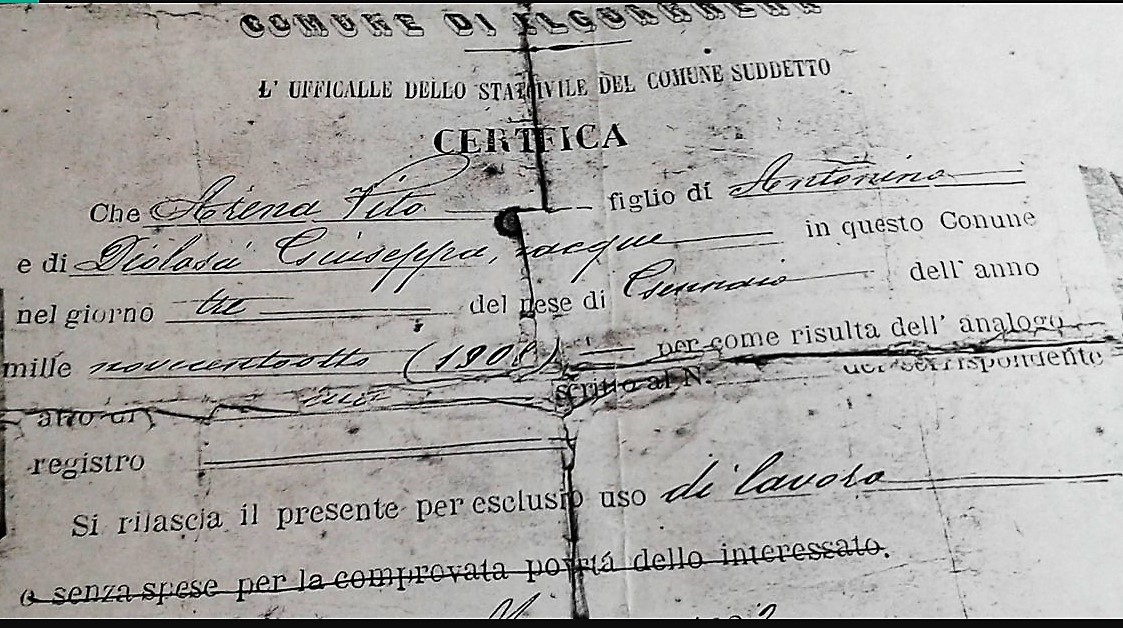 COMUNE DI
L' UFFICALLE DELLO STATCIVILE DEL COMUNE SUDDETTO
CERTFICA
Che Arena Vito figlio di Antonino
e di Diolosà Giuseppa, nacque in questo Conune
nel giorno tre del nese di Gennaio dell' anno
mille novecentootto (1908) per come risulta dell' analogo
atto di scritto al N. del serrispondente
registro
Si rilascia il presente per esclusio uso di lavoro
o senza spese per la comprovata portá dello interessato.